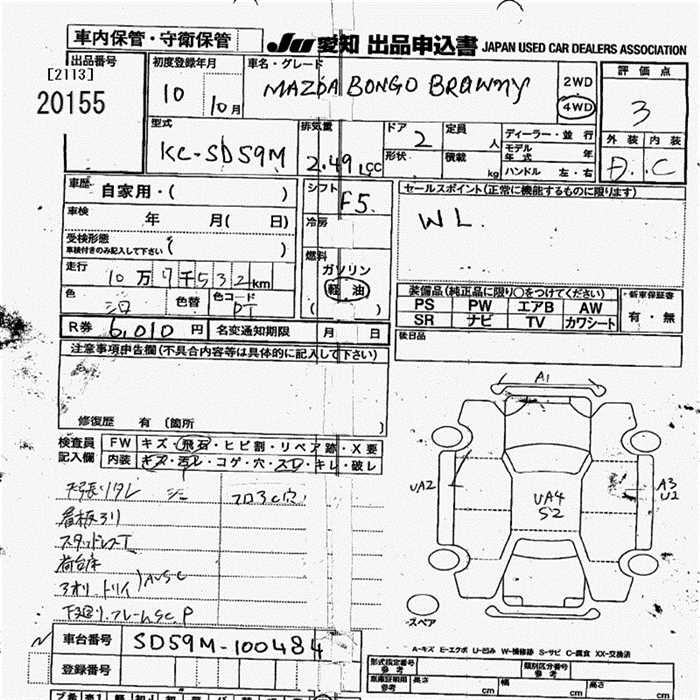 車内保管・守衛保管
JU 愛知 出品申込書 JAPAN USED CAR DEALERS ASSOCIATION
出品番号
[2113]
20155
初度登録年月
10 10月
車名・グレード
MAZDA BONGO BRAWNY
2WD
4WD
評価点
3
外装 内装
D. C
型式
KC-SD59M
排気量
2.49 LCC
ドア 2
形状
定員 人
積載 kg
ディーラー・並行
モデル年式 年
ハンドル 左・右
車歴 自家用・( )
車検 年 月( 日)
受検形態
車検付きのみ記入して下さい ( )
走行 10万7千532km
色 色替 色コード
PT
シフト
F5.
冷房
燃料
ガソリン
軽油
( )
セールスポイント(正常に機能するものに限ります)
WL
装備品(純正品に限り○をつけてください)
PS PW エアB AW
SR ナビ TV カワシート
・新車保証書
有・無
後日品
R券 6,010円 名変通知期限 月 日
注意事項申告欄(不具合内容等は具体的に記入して下さい)
修復歴 有 〔箇所 〕
検査員記入欄
FW キズ・飛石・ヒビ割・リペア跡・X要
内装 キズ・汚レ・コゲ・穴・スレ・キレ・破レ
天張りタレ
フロアC穴
看板アリ
スタッドレス
荷台床
アオリ・トリイ AUSC
下廻り・フレームSC P
A1
UA2
UA4
S2
A3
U2
-スペア
A-キズ E-エクボ U-凹み W-補修跡 S-サビ C-腐食 XX-交換済
車台番号 SD59M-100484
登録番号
形式指定番号 参考
類別区分番号 参考
車庫証明用 参考
長さ cm
幅 cm
高さ cm